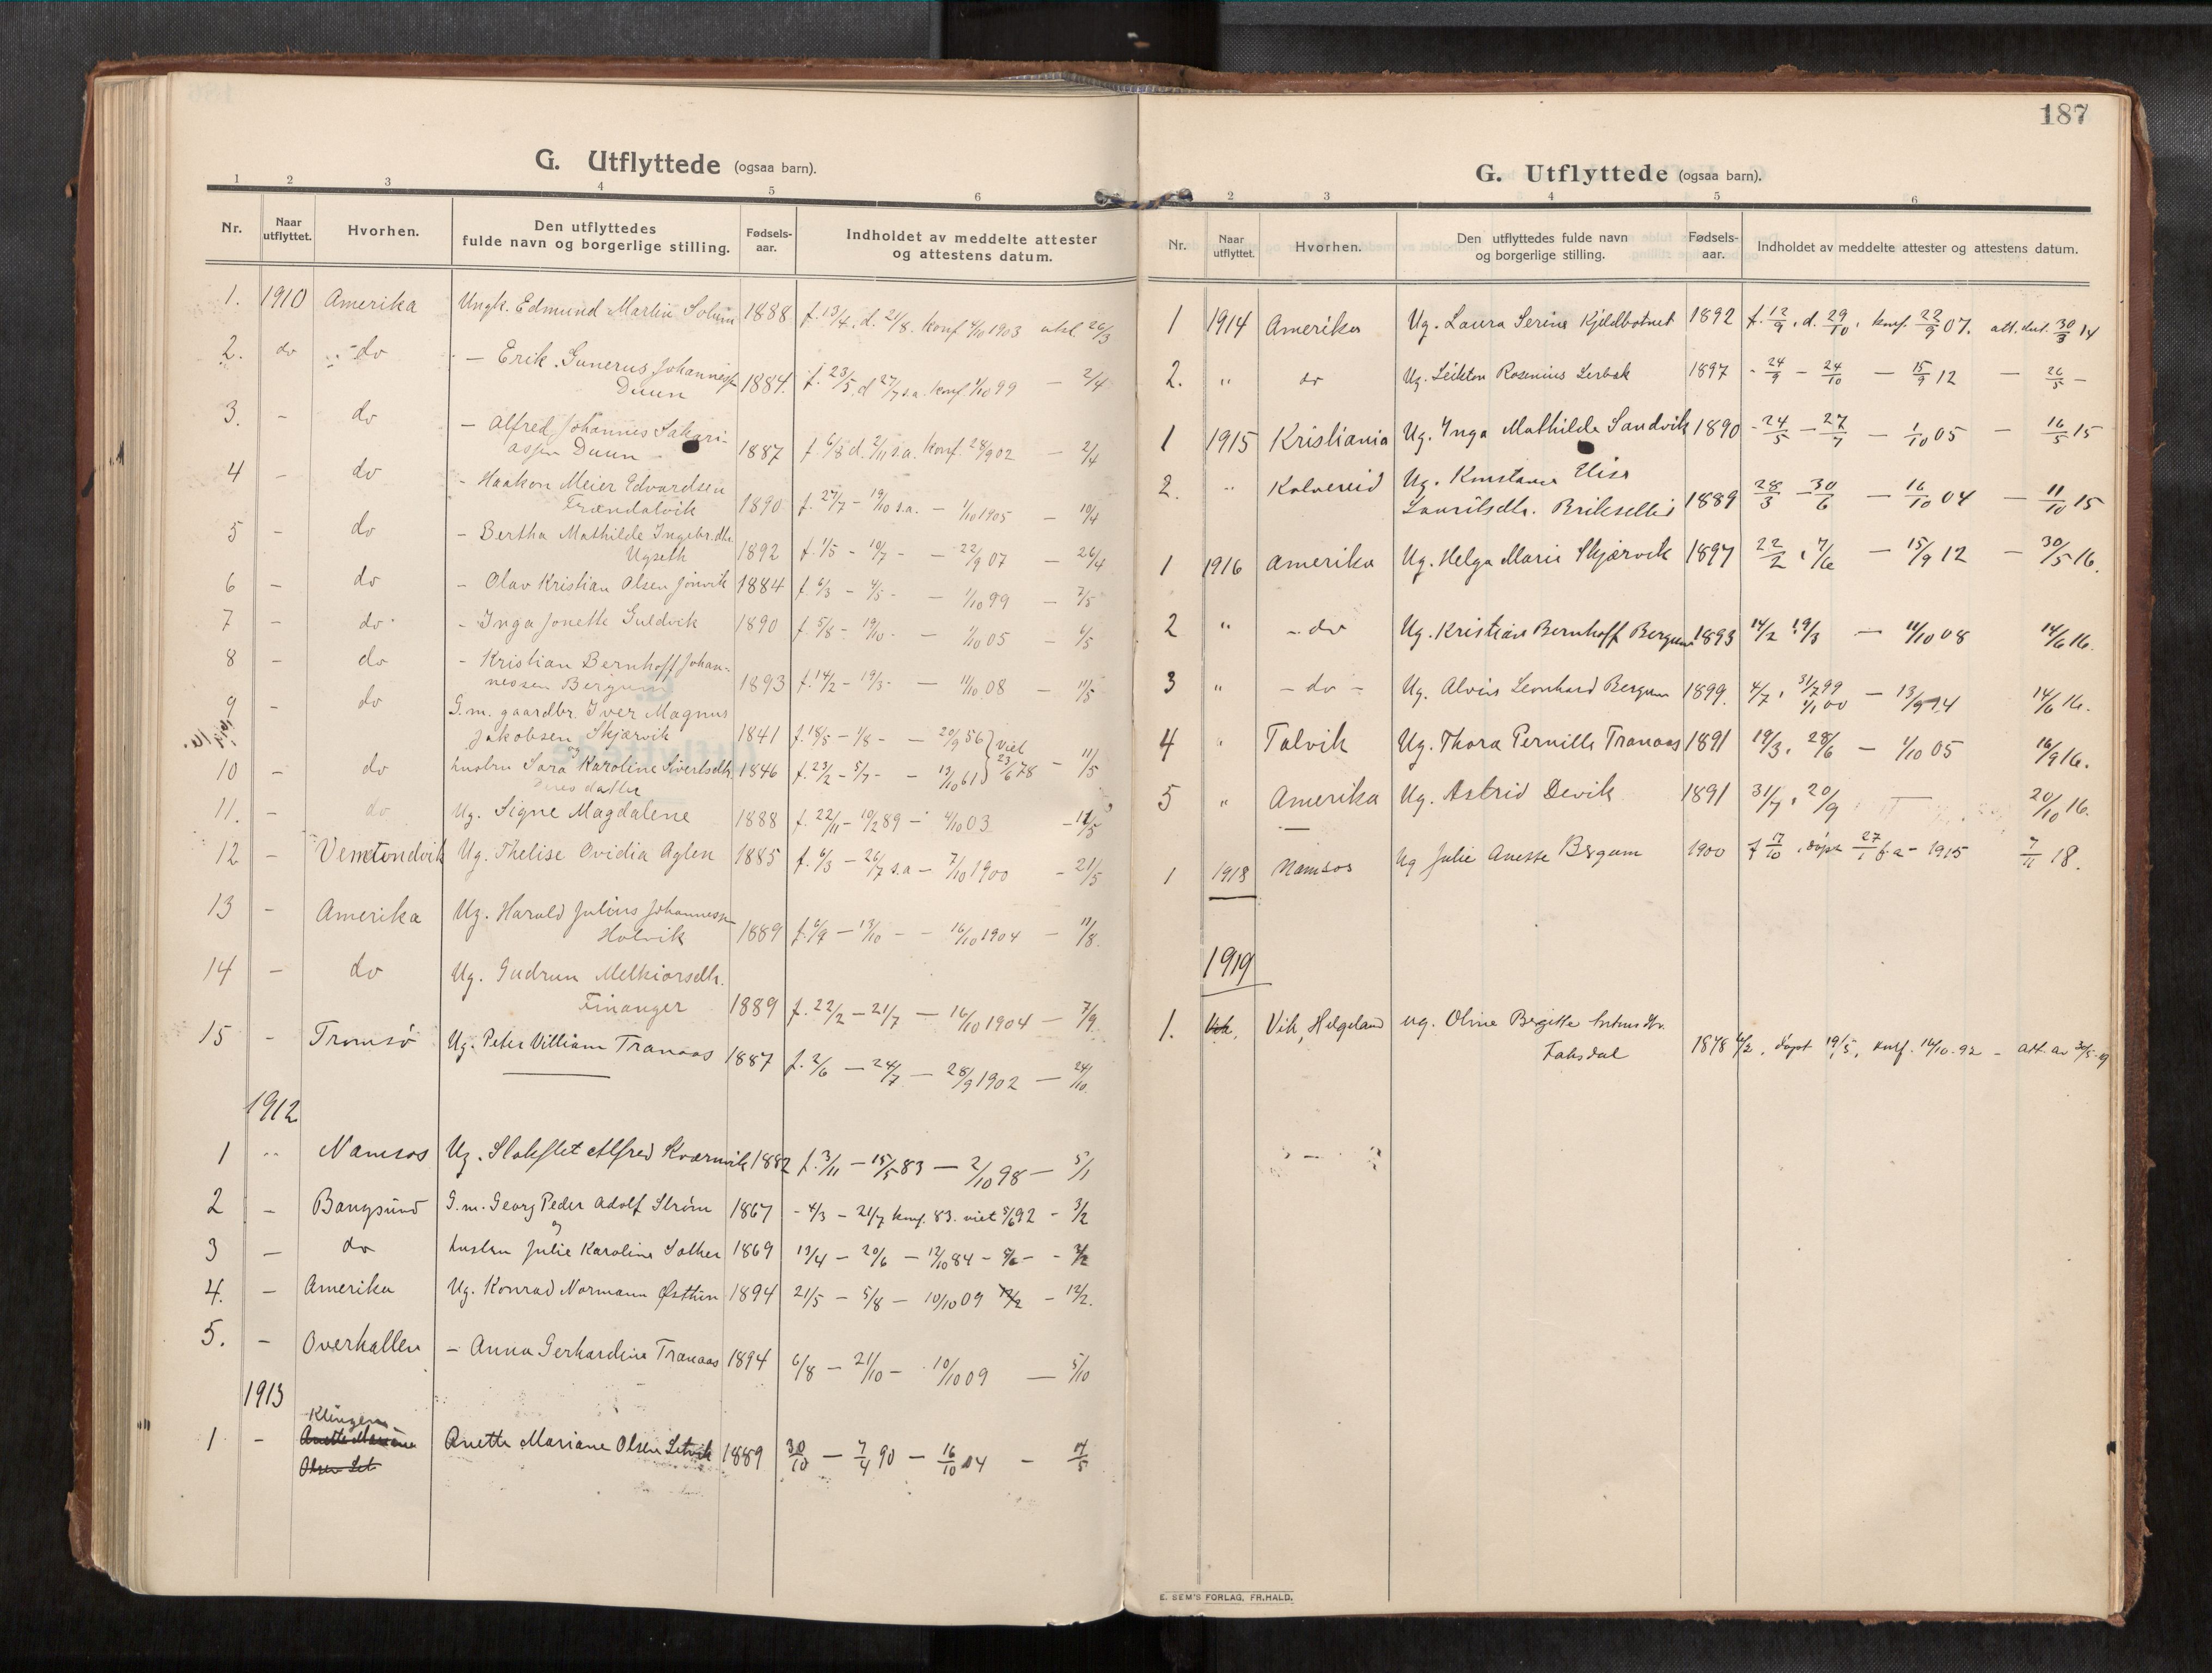 187
G. Utflyttede (ogsaa barn).
1 2 3 4 5 6
Nr. Naar utflyttet. Hvorhen. Den utflyttedes fulde navn og borgerlige stilling. Fødsels-aar. Indholdet av meddelte attester og attestens datum.
1. 1910 Amerika Ungk. Edmund Martin Solum 1888 f. 13/4, d. 21/8. konf 4/10 1903 utst. 26/3
2. do do — Erik Gunerus Johanness.
Duun 1884. f. 23/5 d 27/7 s.a. konf. 1/10 99 — 2/4
3. - do — Alfred Johannes Sakari-
assen Duun 1887 f. 6/8 d. 2/11 s.a. konf. 28/9 02 — 2/4
4 - do - Haakon Meier Edvardsen
Trændalvik 1890 f. 27/7 - 19/10 s.a. — 1/10 1905 — 10/4
5 - do - Bertha Mathilde Ingebr.dtr.
Ugseth 1892 f. 1/5 - 10/7 - — 22/9 07 — 26/4
6 - do - Olav Kristian Olsen Jonvik 1884 f. 6/3 - 4/5 - — 1/10 99 — 7/5
7 - do - Inga Jonette Guldvik 1890 f. 5/8 - 19/10 - — 1/10 05 — 6/5
8 - do - Kristian Bernhoff Johan-
nessen Bergum 1893 f. 14/2 - 19/3 - — 11/10 08 — 11/5
9 - do G.m. gaardbr. Iver Magnus
Jakobsen Skjærvik 1841 f. 18/5 - 1/8 - — 20/9 56 } viet
og
10 - do hustru Sara Karoline Sivertsdtr. 1846 f. 23/2 - 5/7 - — 13/10 61 } 23/6 78 — 11/5
deres datter
11. - do Ug. Signe Magdalene 1888 f. 22/11 - 10/2 89 - 4/10 03 - 11/5
12 - Vemundvik Ug. Thelise Ovidia Aglen 1885 f. 6/3 — 26/7 s.a — 7/10 1900 - 21/5
13 - Amerika Ug. Harald Julius Johannessen
Holvik 1889 f. 6/9 — 13/10 - - 16/10 1904 — 11/8.
14 - do Ug. Gudrun Melkiorsdtr.
Finanger 1889 f. 22/2 — 21/7 — 16/10 1904 — 7/9.
15 - Tromsø Ug. Peter Villiam Tranaas 1887 f. 2/6 — 24/7 — 28/9 1902 — 24/10.
1912
1 " Namsos Ug. Alfred Kværnvik 1882 f. 3/11 — 15/5 83 — 2/10 98 — 5/1
2 - Bangsund G.m. Georg Peder Adolf Strøm 1867 - 4/3 — 21/7 konf. 83. viet 5/6 92 - 3/2
og
3 - do hustru Julie Karoline Sather 1869 13/4 — 20/6 — 12/10 84 - 5/6 - - 3/2
4. - Amerika Ug. Konrad Normann Østhun 1894 21/5 — 5/8 — 10/10 09 12/2 — 12/2.
5. - Overhallen - Anna Gerhardine Tranaas 1894 6/8 — 21/10 — 10/10 09 — 5/10
1913
Klingen
1 - Anette Mariane Anette Mariane Olsen Setvik 1889 30/10 — 7/4 90 — 16/10 04 — 14/5
Olsen Set
G. Utflyttede (ogsaa barn).
2 3 4 5 6
Nr. Naar utflyttet. Hvorhen. Den utflyttedes fulde navn og borgerlige stilling. Fødsels-aar. Indholdet av meddelte attester og attestens datum.
1 1914 Amerika Ug. Laura Serine Kjeldbotnet 1892 f. 12/9, d. 29/10, konf. 22/9 07. att. dat. 30/3 14
2. " do Ug. Leikton Rosenius Lerbak 1897 - 24/9 — 24/10 — 15/9 12 — 26/5 -
1 1915 Kristiania Ug. Inga Mathilde Sandvik 1890 - 24/5 — 27/7 — 1/10 05 — 16/5 15
2. " Kolvereid Ug. Konstanse Elise
Lauritsdtr. 1889 28/3 — 30/6 — 16/10 04 — 11/10 15
1 1916 Amerika Ug. Helga Marie Skjærvik 1897 22/2, 7/6 — 15/9 12 — 30/5 16.
2 " - do Ug. Kristian Bernhoff Bergum 1893 14/2 19/3 — 11/10 08 14/6 16.
3 " - do - Ug. Alvin Leonhard Bergum 1899. 4/7, 31/7 99 1/1 00 — 13/9 14 14/6 16.
4 " Talvik Ug. Thora Pernille Tranaas 1891 19/3, 28/6 — 1/10 05 16/9 16.
5 " Amerika Ug. Astrid Devik 1891 31/7, 20/9 — 20/10 16.
1 1918 Namsos Ug Julie Anette Bergum 1900 f 17/10, døpt 27/1 f.a - 1915 7/11 18.
1919
1. Vik, Vik, Helgeland ug. Oline Birgitte
Faksdal 1878 6/2, døpt 19/5, konf. 16/10. 92 - att. av 30/5 19
E. SEM'S FORLAG, FR.HALD.